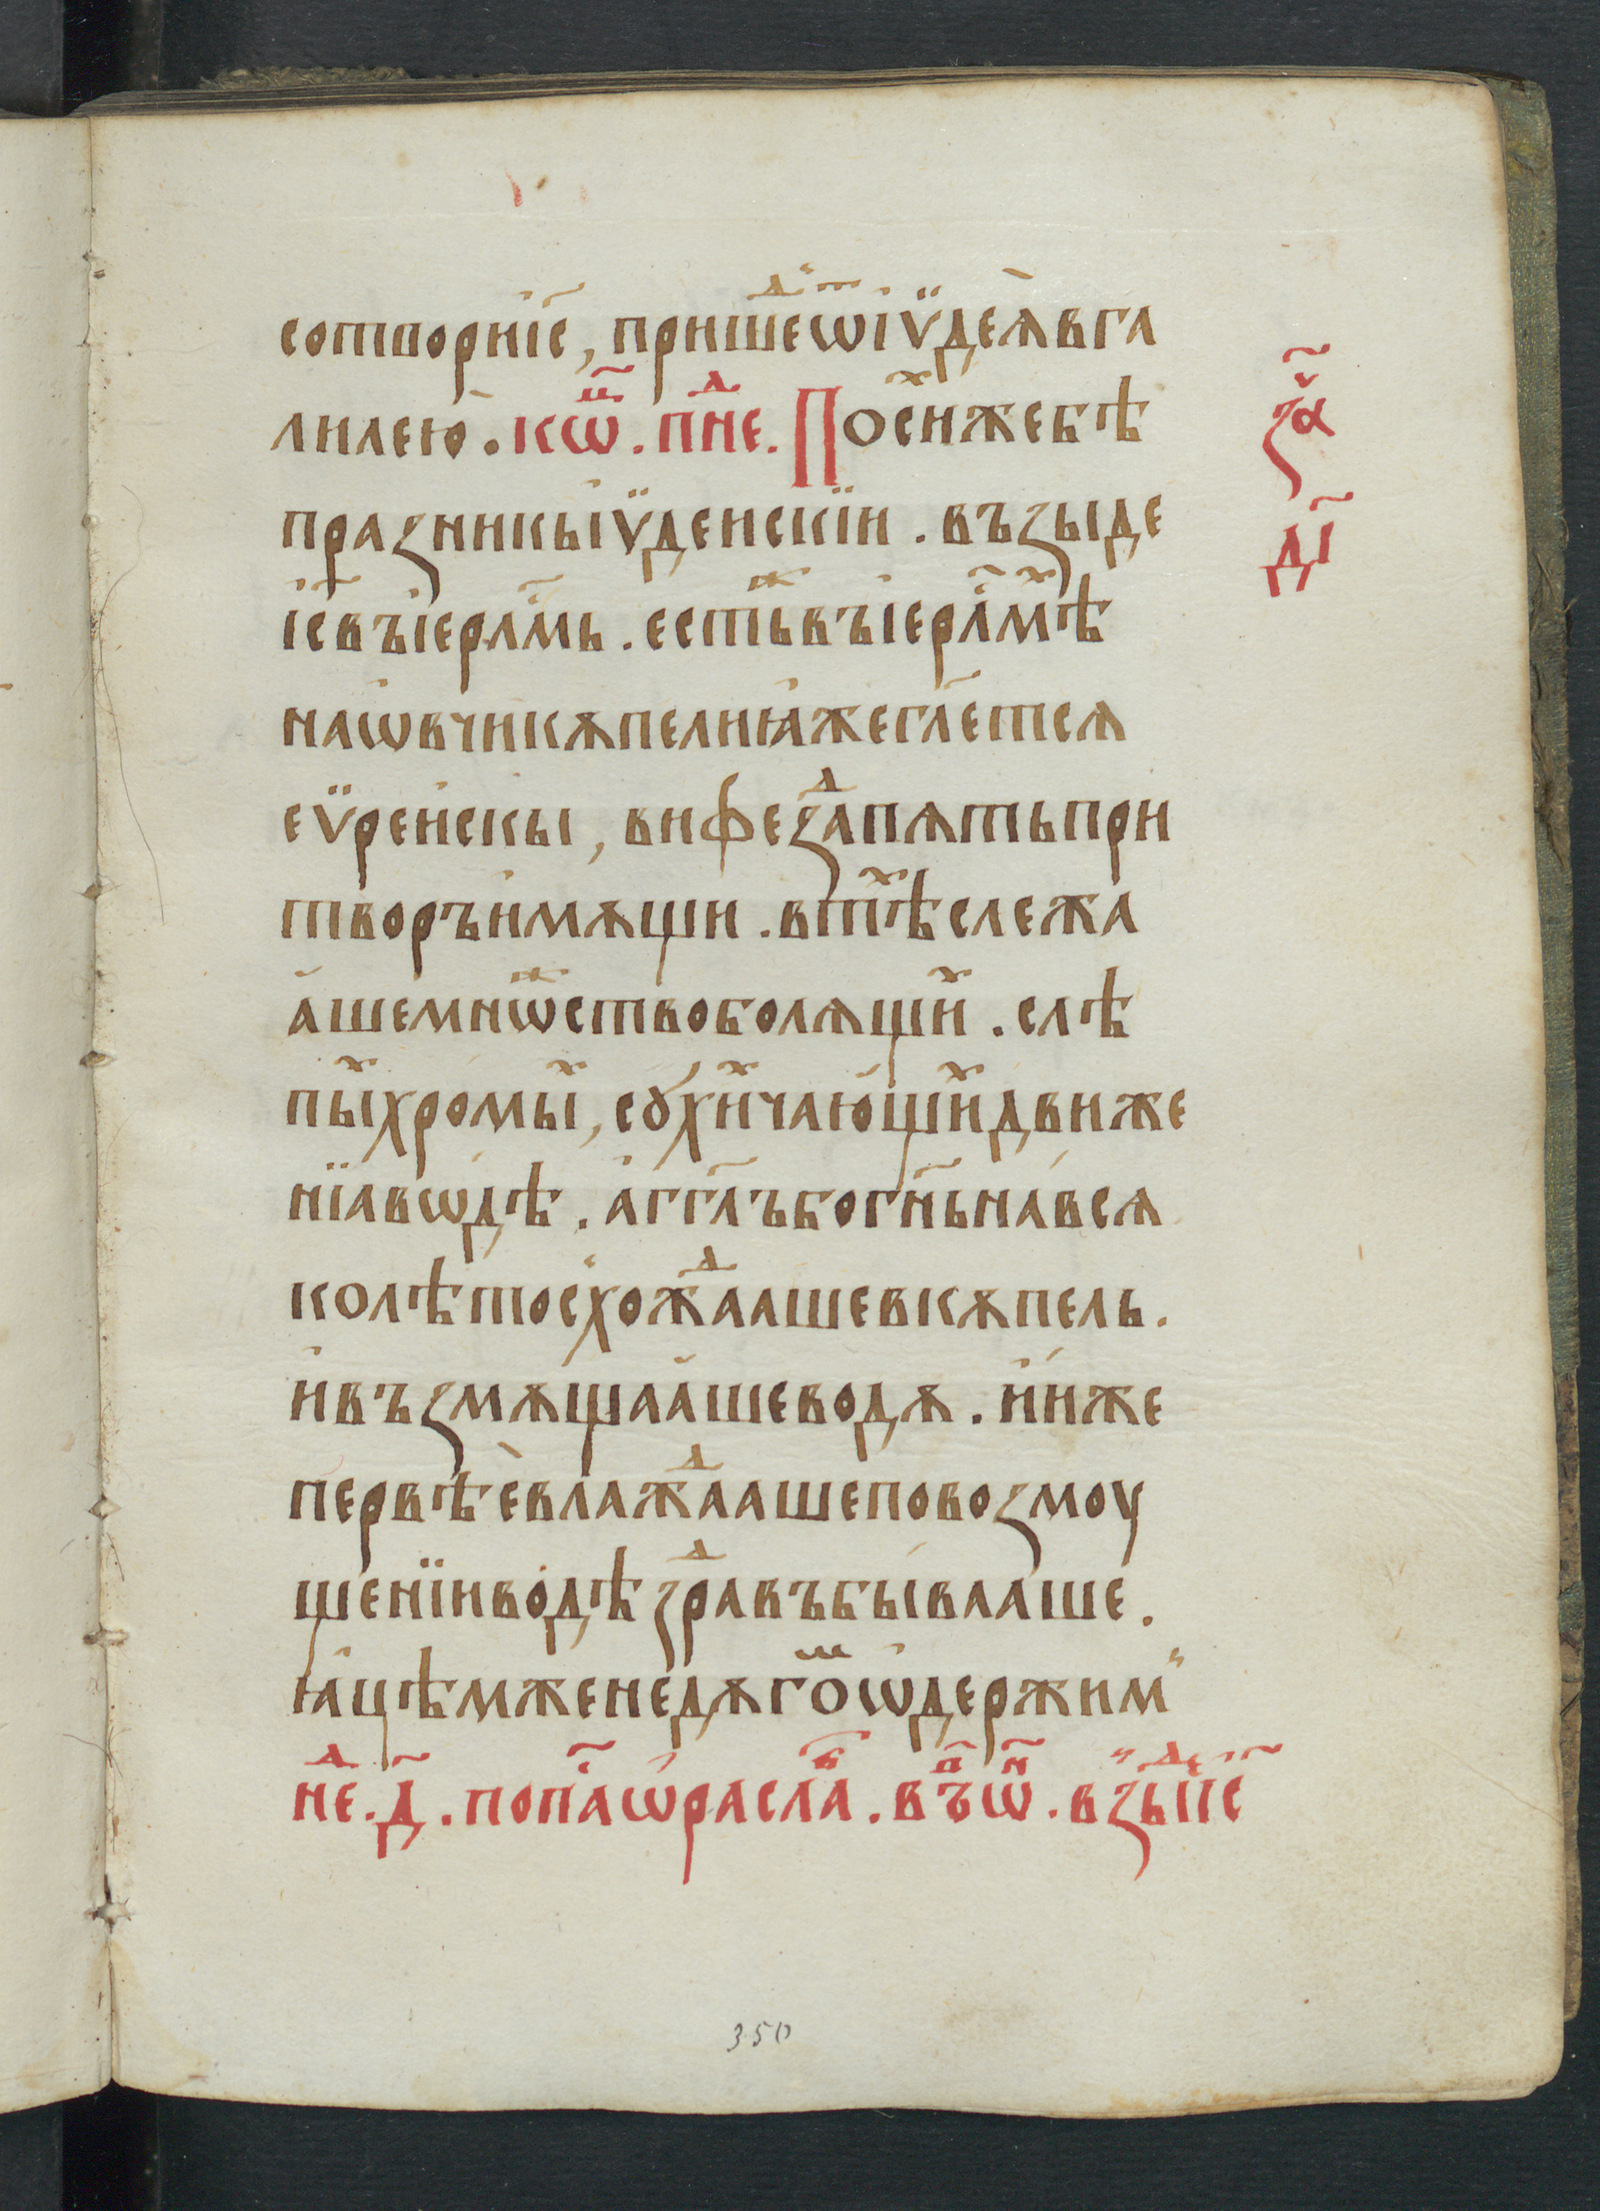 сотвори і҃с, прише́дⷣ ѿ іꙋ̈дея̀ в га
лилею̀. ко҃ⷰ. пⷣне. По сиⷯ же бѣ
праꙁникь іѵ̈деискїи. въꙁыде
і҃с въ іерл҃мь. естьⷤ въ іерл҃мѣⷯ
на ѡвчи кѫпели ꙗ́же гл҃етсѧ
еѵ̈реискы, виѳеꙁⷣа пѧть при
творъ имѫщи. в тѣⷯ слежа
а́ше мнѡⷤство болѧщиⷯ. слѣ
пыⷯ хромыⷯ, сꙋхиⷯ чаю́щиⷯ движе
нїа вѡдѣ. а́гг҃лъ бо гн҃ь на́ всѧ
колѣто схожⷣааше в кѫпель.
и въꙁмѫщаа́ше водѫ. и́ иже
первѣѐ влажⷣааше по воꙁмоу
щенїи водѣ ꙁⷣравъ бы́вааше.
ꙗцѣм же недѫгоⷨ ѡдержим
неⷣ. д҃. по па҃сѡ раслаⷠ. въⷫ ѡⷩ. вꙁыⷣ і҃с
ꙁа҃ⷱ
ді҃
350